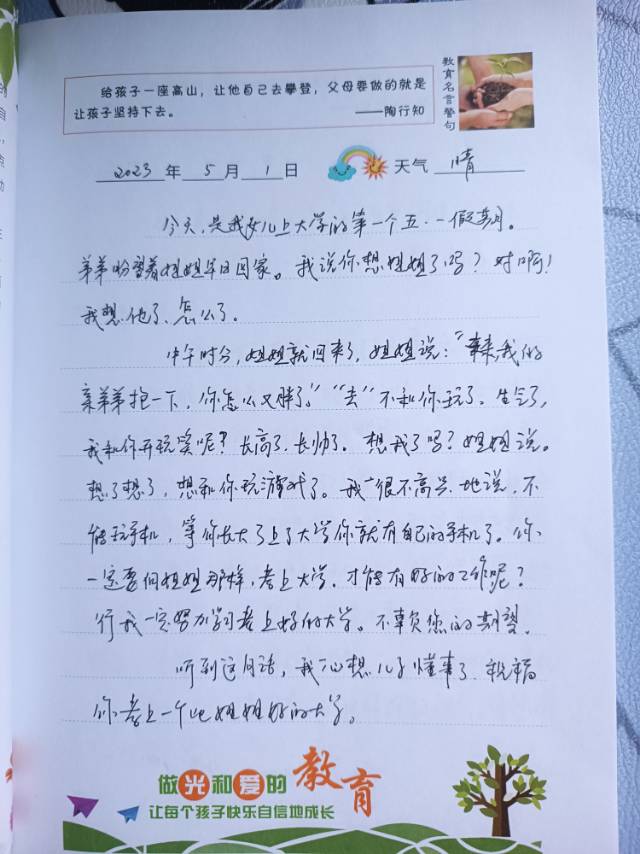 给孩子一座高山，让他自己去攀登，父母要做的就是
让孩子坚持下去。 ——陶行知
教育名言警句
2023 年 5 月 1 日 天气 晴
今天，是我女儿上大学的第一个五·一假期。
弟弟盼望着姐姐早日回家。我说你想姐姐了吗？对啊！
我想他了、怎么了。
中午时分，姐姐就回来了，姐姐说：“来我的
亲弟弟抱一下，你怎么又胖了。”“去”不和你玩了。生气了，
我和你开玩笑呢？长高了、长帅了。想我了吗？姐姐说。
想了想了，想和你玩游戏了。我很不高兴地说，不
能玩手机，等你长大了上了大学你就有自己的手机了。你
一定要向姐姐那样，考上大学。才能有好的工作呢？
行我一定努力学习考上好的大学。不辜负您的期望。
听到这句话，我心想儿子懂事了、祝福
你考上一个比姐姐好的大学。
做光和爱的教育
让每个孩子快乐自信地成长